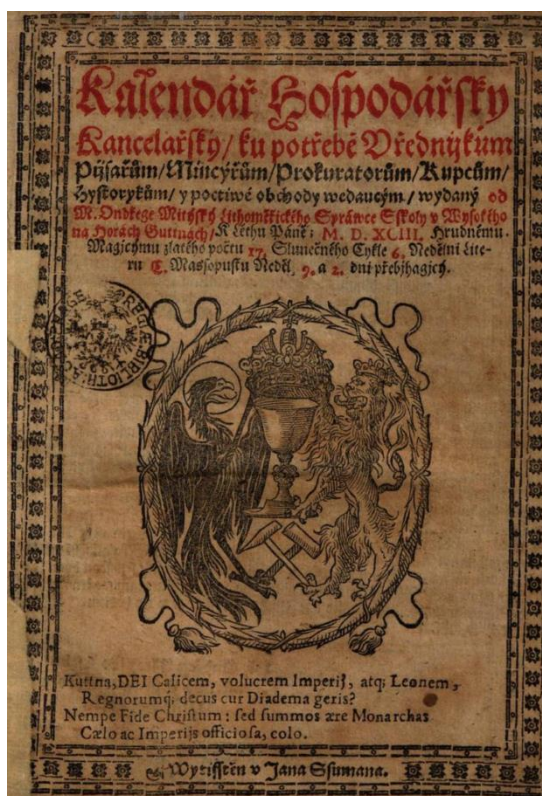 Kalendář Hospodářský
Kancelařský/ ku potřebě Vřednijkům
Pijsařům/Mincýřům/Prokuratorům/Kupcům/
Hystorykům/ y poctiwé obchody wedaucým/ wydaný od
M. Ondřege Mitýsky Lithoměřického Spráwce Sskoly v Wysokého
na Horách Guttnách/ K Léthu Páně: M. D. XCIII. Hrudnému.
Magjcýmu zlatého počtu 17. Slunečného Cykle 6. Nedělní Lite-
ru C. Massopustu Neděl, 9. a 2. dni přebjhagjcý.
BIBLIOTH
Kuttna, DEI Calicem, volucrem Imperij, atq; Leonem,
Regnorumq; decus cur Diadema geris?
Nempe Fide Christum: sed summos ære Monarchas
Cælo ac Imperijs officiosa, colo.
Wytisstěn v Jana Ssumana.